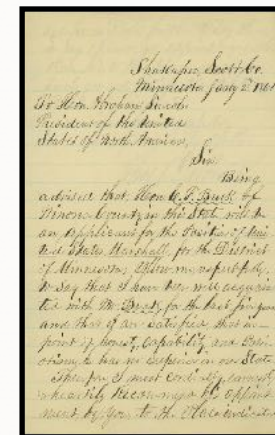 Shakopee, Scott Co.
Minnesota Jany 2 1861
To Hon. Abraham Lincoln
President of the United
States of North America,
Sir
Being
advised that Hon C. F. Buck of
Winona County in this State will be
an applicant for the Position of Uni
ted States Marshall for the District
of Minnesota, allow me respectfully
to say that I have been well acquain
ted with Mr Buck for the last
and that I am satisfied that in
point of honesty, capability and
he has no superior in our State
I therefore most cordially, earnestly
& heartily recommend his appoint
ment by you to the Place indicated